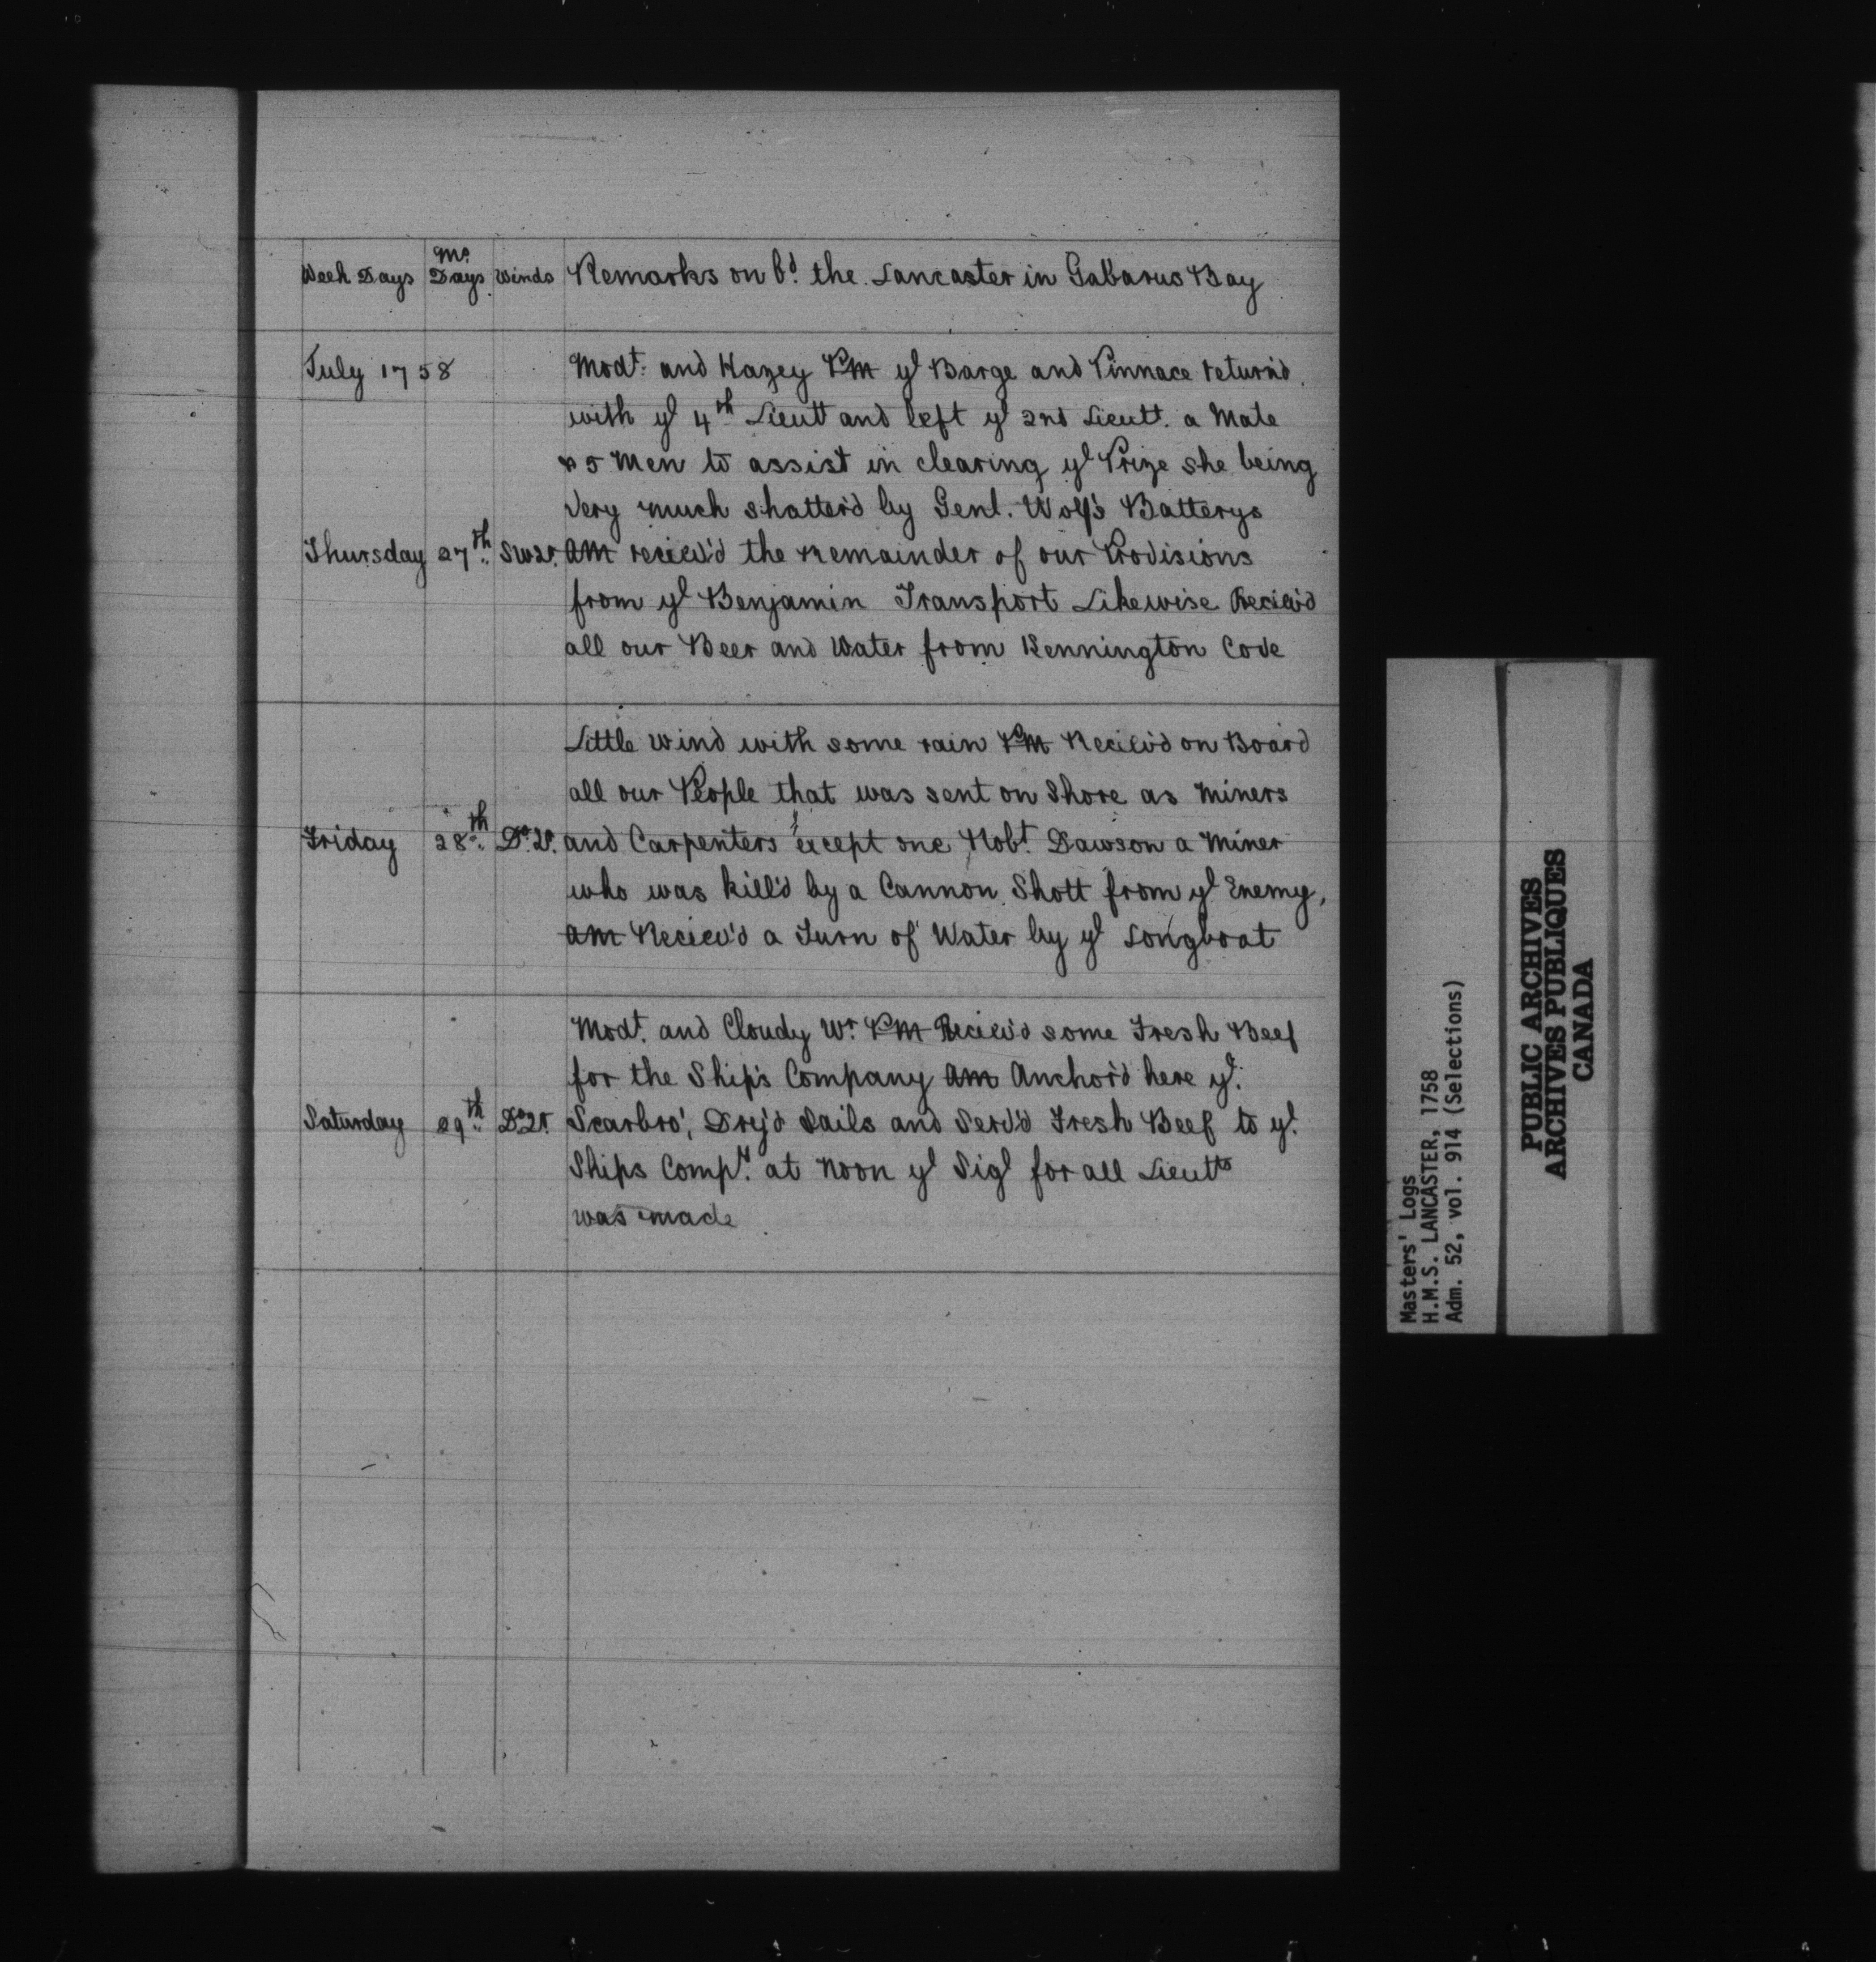 Week Days Mo. Days Winds Remarks on bd. the Lancaster in Gabarus Bay
July 1758 Modt. and Hazey PM ye Barge and Pinnace return'd
with ye 4th Lieutt and left ye 2nd Lieutt. a Mate
& 5 Men to assist in clearing ye Prize she being
Very much shatter'd by Genl. Wolf's Batterys
Thursday 27th AM reciev'd the Remainder of our Provisions
from ye Benjamin Transport Likewise Reciev'd
all our Beer and Water from Kennington Cove
Little Wind with some rain PM Reciev'd on Board
all our People that was sent on Shore as Miners
Friday 28th Do. and Carpenters except one Robt. Dawson a Miner
who was kill'd by a Cannon Shott from ye Enemy,
AM Reciev'd a Turn of Water by ye Longboat
Modt. and Cloudy Wr. PM Reciev'd some Fresh Beef
for the Ship's Company AM Anchor'd here ye.
Saturday 29th Do. Scarbro', Drey'd Sails and Serv'd Fresh Beef to ye.
Ships Compy. at Noon ye Sigl for all Lieutts
was made
Masters' Logs
H.M.S. LANCASTER, 1758
Adm. 52, vol. 914 (Selections)
PUBLIC ARCHIVES
ARCHIVES PUBLIQUES
CANADA